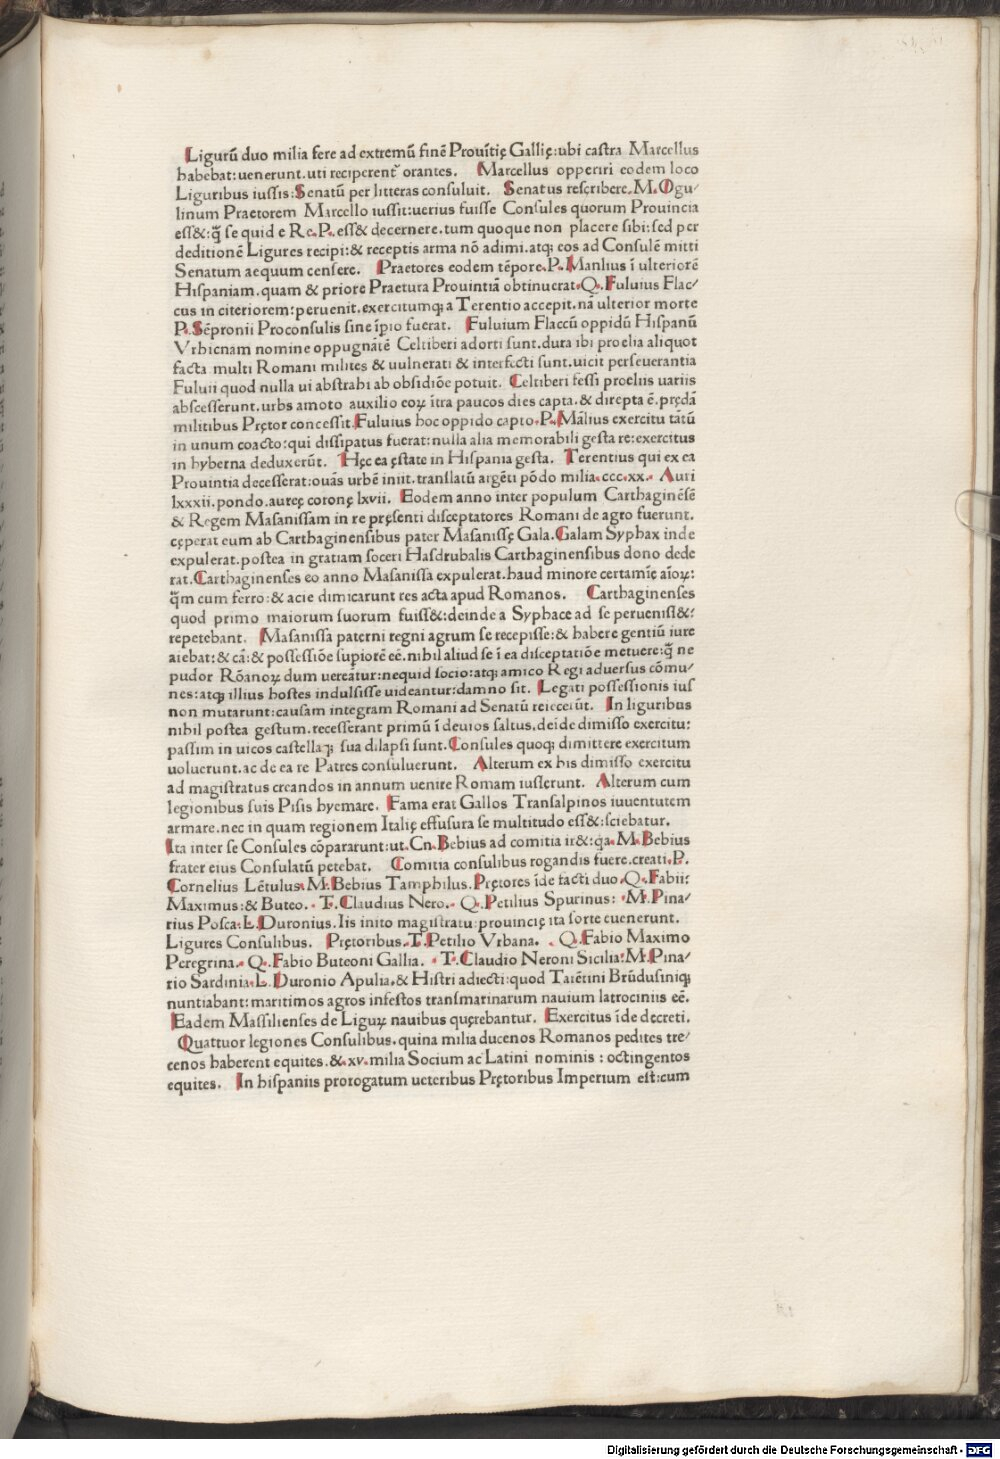 Ligurū duo milia fere ad extremū finē Prouītię Gallię:ubi castra Marcellus
habebat:uenerunt.uti reciperent᷑ orantes. Marcellus opperiri eodem loco
Liguribus iussis:Senatū per litteras consuluit. Senatus rescribere.M.Ogu/
linum Praetorem Marcello iussit:uerius fuisse Consules quorum Prouincia
ess&:q̄ se quid e Re.P.ess& decernere.tum quoque non placere sibi:sed per
deditionē Ligures recipi:& receptis arma nō adimi.atq; eos ad Consulē mitti
Senatum aequum censere. Praetores eodem tēpore.P.Manlius ī ulteriorē
Hispaniam.quam & priore Praetura Prouintiā obtinuerat.Q.Fuluius Flac/
cus in citeriorem:peruenit.exercitumq; a Terentio accepit.nā ulterior morte
P.Sēpronii Proconsulis sine īpio fuerat. Fuluium Flaccū oppidū Hispanū
Vrbicnam nomine oppugnātē Celtiberi adorti sunt.dura ibi proelia aliquot
facta multi Romani milites & uulnerati & interfecti sunt.uicit perseuerantia
Fuluii quod nulla ui abstrahi ab obsidiōe potuit. Celtiberi fessi proeliis uariis
abscesserunt.urbs amoto auxilio eoꝝ ītra paucos dies capta.& direpta ē.prędā
militibus Prętor concessit.Fuluius hoc oppido capto.P.Mālius exercitu tātū
in unum coacto:qui dissipatus fuerat:nulla alia memorabili gesta re:exercitus
in hyberna deduxerūt. Hęc ea ęstate in Hispania gesta. Terentius qui ex ea
Prouintia decesserat:ouās urbē iniit.translatū argēti pōdo milia.ccc.xx. Auri
lxxxii.pondo.aureę coronę lxvii. Eodem anno inter populum Carthaginēsē
& Regem Masanissam in re pręsenti disceptatores Romani de agro fuerunt.
cęperat eum ab Carthaginensibus pater Masanissę Gala.Galam Syphax inde
expulerat.postea in gratiam soceri Hasdrubalis Carthaginensibus dono dede
rat.Carthaginenses eo anno Masanissa expulerat.haud minore certamīę aīoꝝ:
q̄m cum ferro:& acie dimicarunt res acta apud Romanos. Carthaginenses
quod primo maiorum suorum fuiss&:deinde a Syphace ad se peruenisi&:
repetebant. Masanissa paterni regni agrum se recepisse:& habere gentiū iure
aiebat:& cā:& possessiōe supiorē eē.nibil aliud se ī ea disceptatiōe metuere:q̄ ne
pudor Rōanoꝝ dum uereātur:nequid socio:atq; amico Regi aduersus cōmu/
nes:atq; illius hostes indulsisse uideantur:damno sit. Legati possessionis ius
non mutarunt:causam integram Romani ad Senatū reiecerūt. In liguribus
nibil postea gestum.recesserant primū ī deuios saltus.deīde dimisso exercitu:
passim in uicos castellaq; sua dilapsi sunt.Consules quoq; dimittere exercitum
uoluerunt.ac de ea re Patres consuluerunt. Alterum ex his dimisso exercitu
ad magistratus creandos in annum uenire Romam iusserunt. Alterum cum
legionibus suis Pisis hyemare. Fama erat Gallos Transalpinos iuuentutem
armare.nec in quam regionem Italię effusura se multitudo ess&:sciebatur.
Ita inter se Consules cōpararunt:ut.Cn.Bebius ad comitia ir&:q̄a.M.Bebius
frater eius Consulatū petebat. Comitia consulibus rogandis fuere.creati.P.
Cornelius Lētulus.M.Bebius Tamphilus.Prętores īde facti duo.Q.Fabii:
Maximus:& Buteo..T.Claudius Nero..Q.Petilius Spurinus: .M.Pina/
rius Posca:L.Duronius.Iis inito magistratu:prouincię ita sorte euenerunt.
Ligures Consulibus. Prętoribus..T.Petilio Vrbana. .Q.Fabio Maximo
Peregrina..Q.Fabio Buteoni Gallia. .T.Claudio Neroni Sicilia:M.Pina/
rio Sardinia.L.Duronio Apulia.& Histri adiecti:quod Tarētini Brūdusiniq;
nuntiabant:maritimos agros infestos transmarinarum nauium latrociniis eē.
Eadem Massilienses de Liguꝝ nauibus quęrebantur. Exercitus īde decreti.
Quattuor legiones Consulibus.quina milia ducenos Romanos pedites tre/
cenos haberent equites.&.xv.milia Socium ac Latini nominis : octingentos
equites. In hispaniis prorogatum ueteribus Prętoribus Imperium est:cum
Digitalisierung gefördert durch die Deutsche Forschungsgemeinschaft - DFG